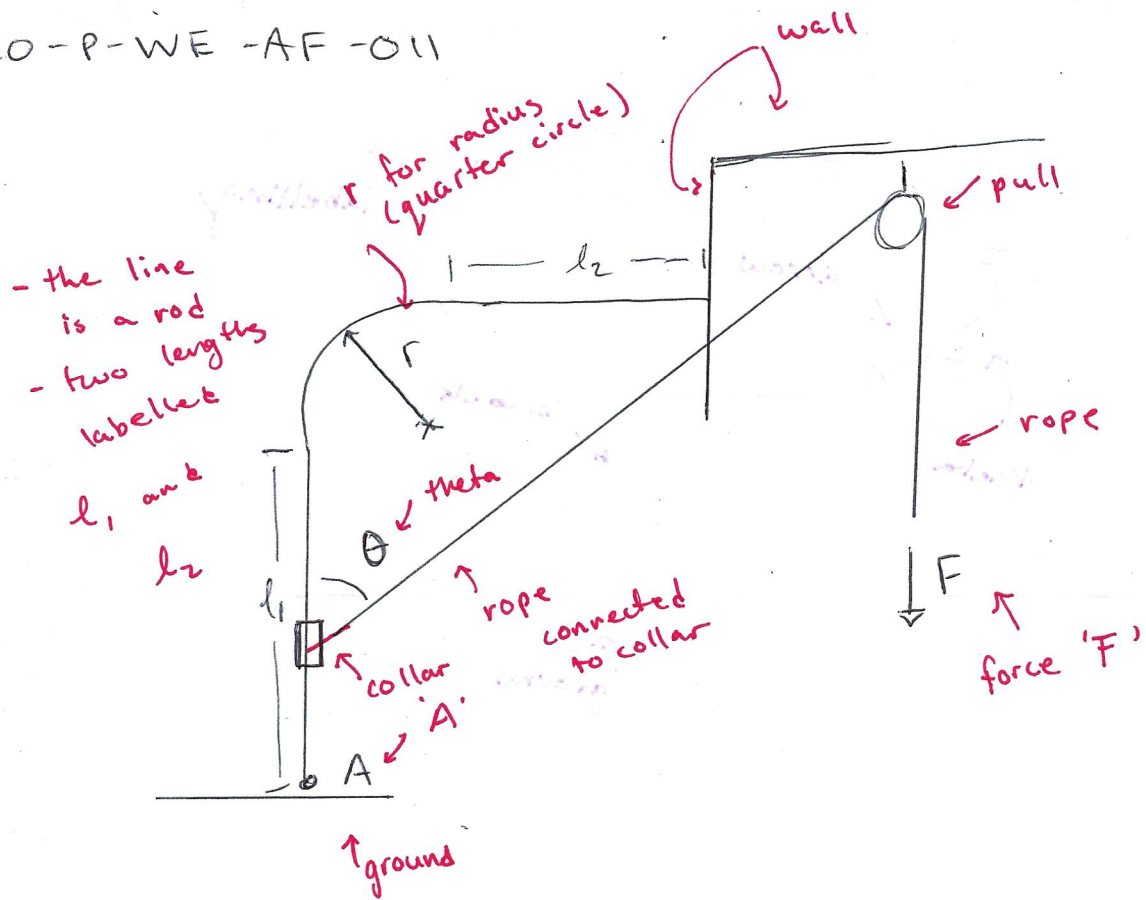 O-P-WE-AF-011
wall
r for radius
(quarter circle)
pull
l2
- the line
is a rod
- two lengths
labelled
l1 and
l2
r
rope
theta
θ
F
l1
rope
connected
to collar
force 'F'
collar
'A'
A
ground